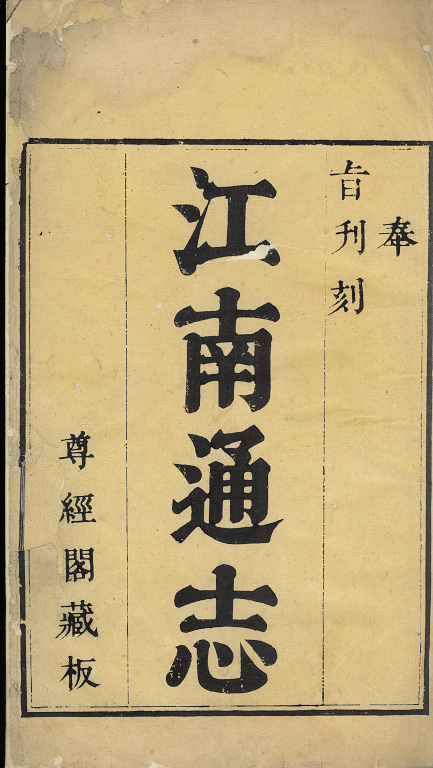 奉
旨刊刻
江南通志
尊經閣藏板